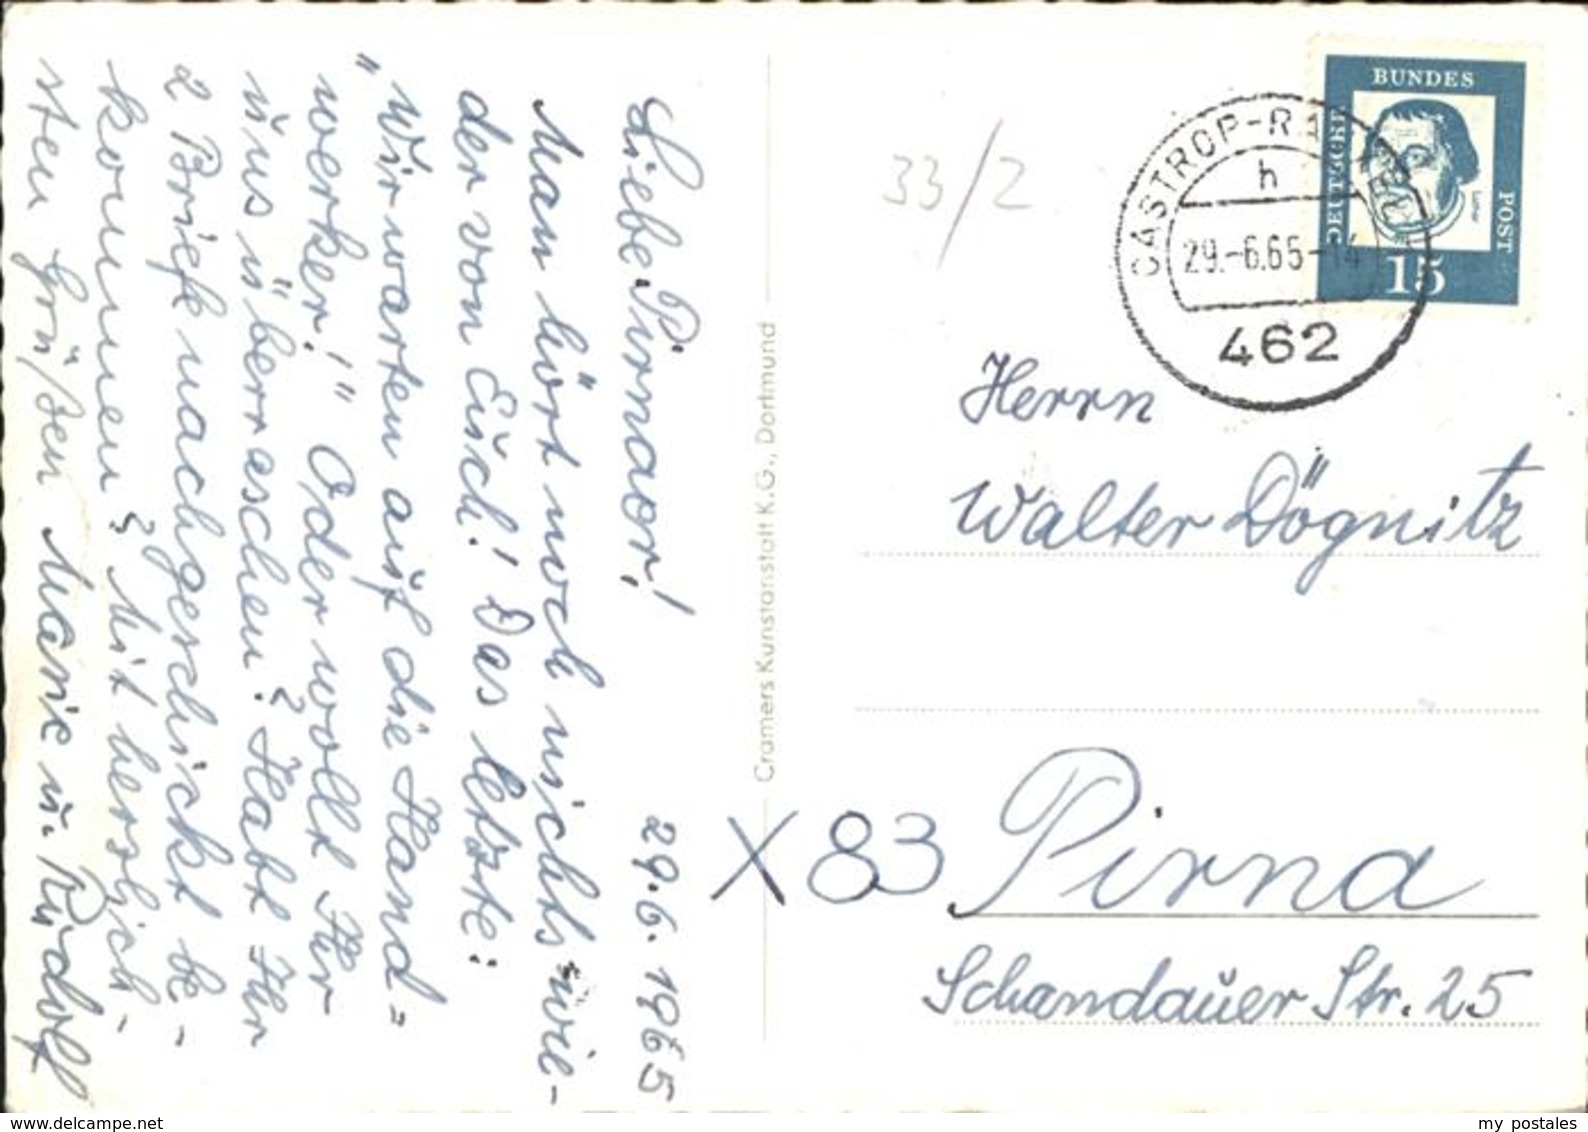 Liebe Pirnaer!
29.6.1965
Man hört noch nichts wie-
der von Euch! Das letzte:
"Wir warten auf die Hand=
werker!" Oder wollt Ihr
uns überraschen? Habt Ihr
2 Briefe nachgeschickt be-
kommen? Mit herzlich-
sten Grüßen Marie u. Rudolf
Cramers Kunstanstalt K.G., Dortmund
33/2
CASTROP-RA
h
29.-6.65-14
462
BUNDES
DEUTSCHE
POST
Luther
15
Herrn
Walter Dögnitz
X 83 Pirna
Schandauer Str. 25
delcampe.net
my_postales